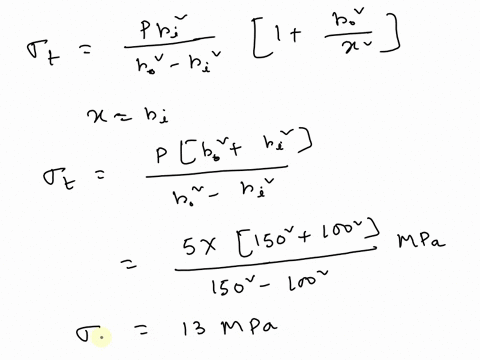 σt = P hi² / (ho² − hi²) [1 + ho²/x²]
x = hi
σt = P [ho² + hi²] / (ho² − hi²)
= 5 × [150² + 100²] / (150² − 100²) MPa
σ. = 13 MPa